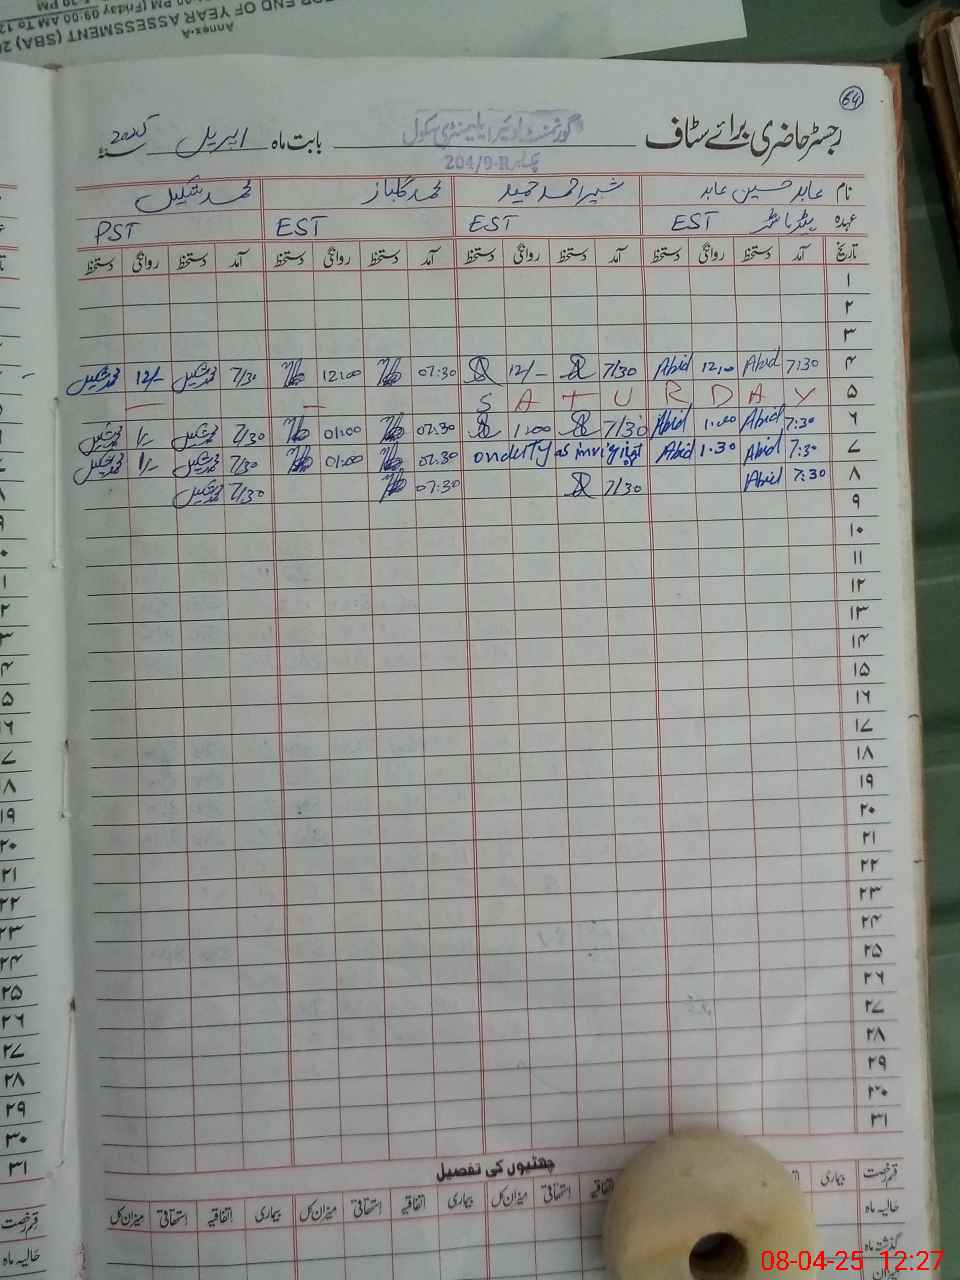 FOR END OF YEAR ASSESSMENT (SBA) 20
Annex-A
64
رجسٹر حاضری برائے سٹاف گورنمنٹ بوائز ایلیمنٹری سکول بابت ماہ اپریل سنہ 2025
چک نمبر 204/9-R
نام عابد حسین عابد شبیر احمد حمید محمد گلباز محمد شکیل
عہدہ ہیڈ ماسٹر EST EST EST PST
تاریخ آمد دستخط روانگی دستخط آمد دستخط روانگی دستخط آمد دستخط روانگی دستخط آمد دستخط روانگی دستخط
۱
۲
۳
۴ 7:30 Abid 12:00 Abid 7/30 12/- 07:30 12:00 7/30 محمد شکیل 12/- محمد شکیل
۵ S A T U R D A Y
۶ 7:30 Abid 1:00 Abid 7/30 1:00 07:30 01:00 7/30 محمد شکیل 1/- محمد شکیل
۷ 7:30 Abid 1:30 Abid onduty as invigilat 07:30 01:00 7/30 محمد شکیل 1/- محمد شکیل
۸ 7:30 Abid 7/30 07:30 7/30 محمد شکیل
۹
۱۰
۱۱
۱۲
۱۳
۱۴
۱۵
۱۶
۱۷
۱۸
۱۹
۲۰
۲۱
۲۲
۲۳
۲۴
۲۵
۲۶
۲۷
۲۸
۲۹
۳۰
۳۱
چھٹیوں کی تفصیل
قسم رخصت بیماری اتفاقیہ استحقاقی میزان کل بیماری اتفاقیہ استحقاقی میزان کل بیماری اتفاقیہ استحقاقی میزان کل
حالیہ ماہ
گذشتہ ماہ
میزان
08-04-25 12:27